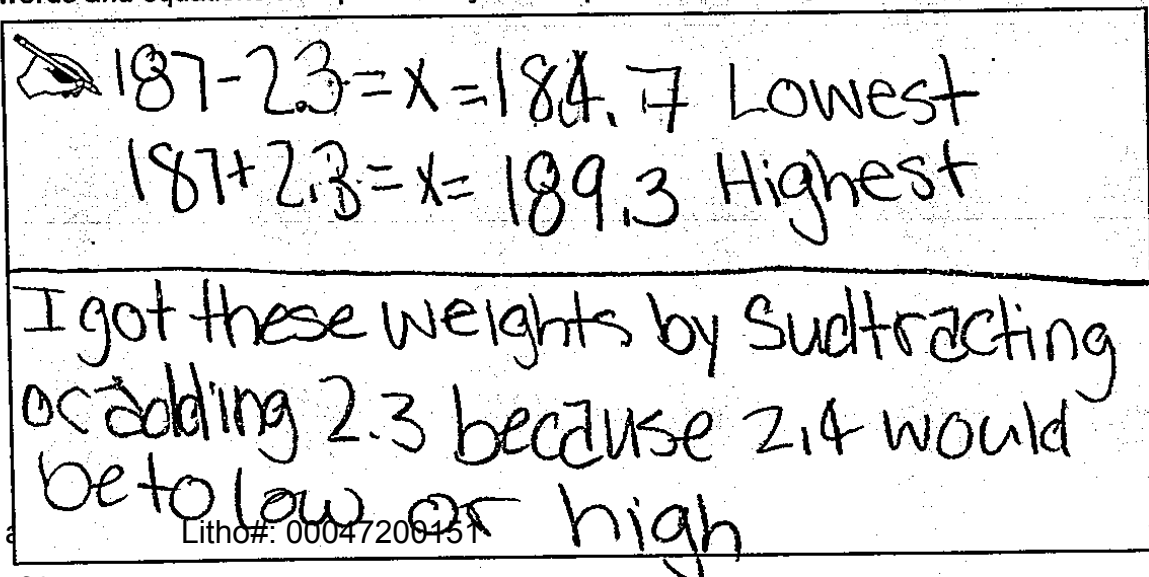 187-2.3=x=184.7 Lowest
187+2.3=x=189.3 Highest
I got these weights by Sudtracting
or adding 2.3 because 2.4 would
be to low or high
Litho#: 00047200151